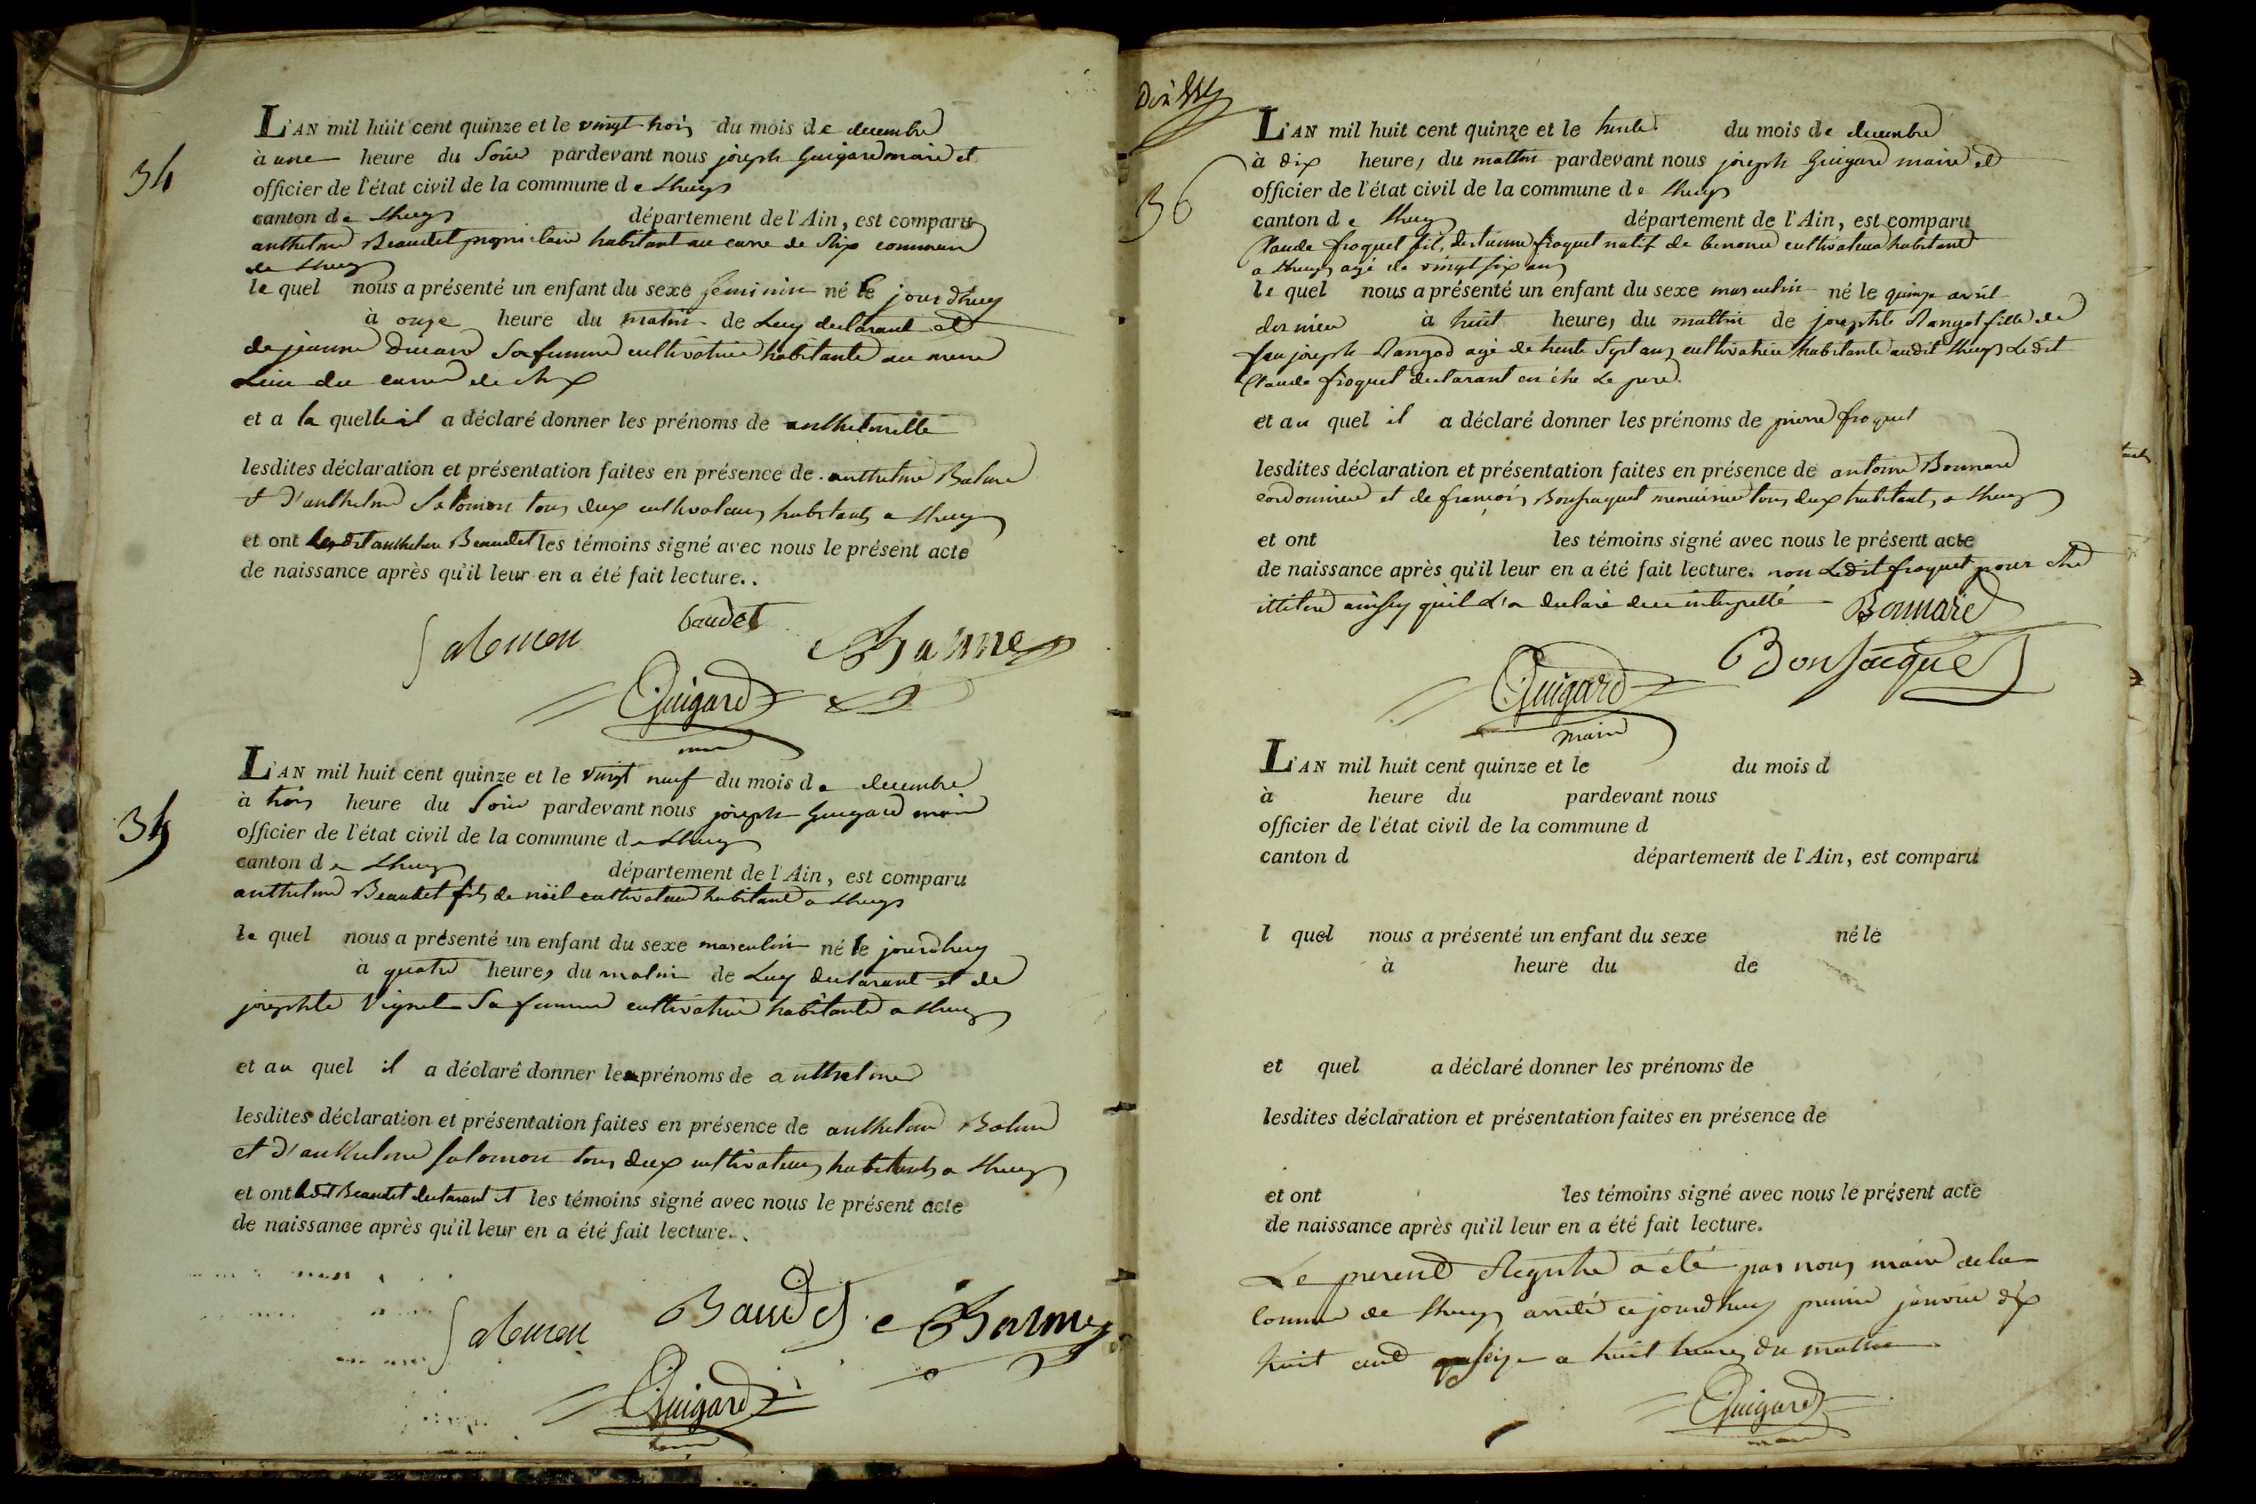 34
L'AN mil huit cent quinze et le vingt trois du mois de decembre
à une heure du Soir pardevant nous joseph Guigard maire et
officier de l'état civil de la commune de Lhuys
canton de Lhuys département de l'Ain, est comparu
anthelme Beaudet proprietaire habitant au carre de Rix commun
de Lhuys
le quel nous a présenté un enfant du sexe feminin né le jourdhuy
à onze heure du matin de Luy declarant et
de jeanne Sa femme cultivatrice habitante au meme
Lieu du carre de Rix
et a la quelle il a déclaré donner les prénoms de anthelmette
lesdites déclaration et présentation faites en présence de anthelme Balme
et d'anthelme Salomon tous deux cultivateurs habitants a Lhuys
et ont ledit anthelme Beaudet les témoins signé avec nous le présent acte
de naissance après qu'il leur en a été fait lecture..
Salomon baudet Balme
Guigard
maire
35
L'AN mil huit cent quinze et le vingt neuf du mois de decembre
à trois heure du Soir pardevant nous joseph Guigard maire
officier de l'état civil de la commune de Lhuys
canton de Lhuys département de l'Ain, est comparu
anthelme Beaudet fils de noël cultivateur habitant a Lhuys
le quel nous a présenté un enfant du sexe masculin né le jourdhuy
à quatre heures du matin de Luy declarant et de
josephte Vignet Sa femme cultivatrice habitante a Lhuys
et au quel il a déclaré donner les prénoms de anthelme
lesdites déclaration et présentation faites en présence de anthelme Balme
et d'anthelme Salomon tous deux cultivateurs habitants a Lhuys
et ont ledit Beaudet declarant et les témoins signé avec nous le présent acte
de naissance après qu'il leur en a été fait lecture..
Salomon Baudet Balme
Guigard
maire
36
L'AN mil huit cent quinze et le trente du mois de decembre
à dix heures du mattin pardevant nous joseph Guigard maire et
officier de l'état civil de la commune de Lhuys
canton de Lhuys département de l'Ain, est comparu
Claude froquet fils d'estienne froquet natif de benonce cultivateur habitant
a Lhuys agé de vingt six ans
le quel nous a présenté un enfant du sexe masculin né le quinze avril
dernier à huit heures du mattin de josephte Rangot fille de
feu joseph Rangod agé de trente Sept ans cultivatrice habitante audit Lhuys Ledit
Claude froquet declarant en être Le pere.
et au quel il a déclaré donner les prénoms de pierre froquet
lesdites déclaration et présentation faites en présence de antoine Bonnard
cordonnier et de françois Bonjaquet menuisier tous deux habitants a Lhuys
et ont les témoins signé avec nous le présent acte
de naissance après qu'il leur en a été fait lecture. non Ledit froquet pour être
ittiliré ainsy qu'il L'a declaré de ce interpretté Bonnard
Bonjacquet
Guigard
maire
L'AN mil huit cent quinze et le du mois d
à heure du pardevant nous
officier de l'état civil de la commune d
canton d département de l'Ain, est comparu
l quel nous a présenté un enfant du sexe né le
à heure du de
et quel a déclaré donner les prénoms de
lesdites déclaration et présentation faites en présence de
et ont les témoins signé avec nous le présent acte
de naissance après qu'il leur en a été fait lecture.
Le present Registre a été par nous maire de la
Commune de Lhuys arrêté ce jourdhuy premier janvier dix
huit cent seize a huit heures du mattin
Guigard
maire